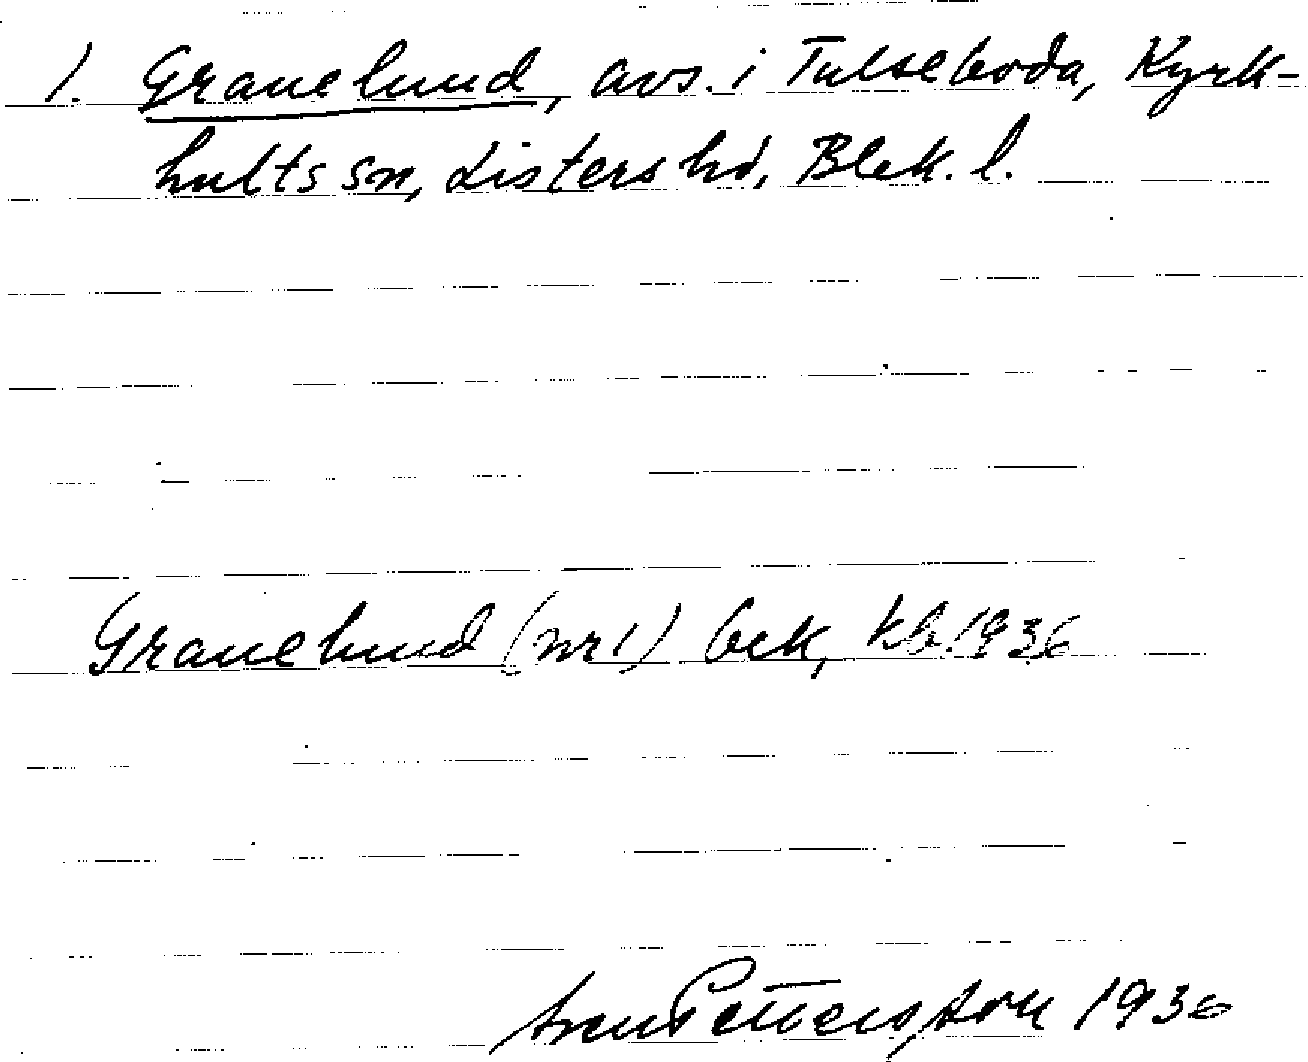 1. Granelund, avs. i Tulseboda, Kyrk-
hults sn, Listers hd, Blek. l.
Granelund (nr 1) bek, kb 1936
Pettersson 1936